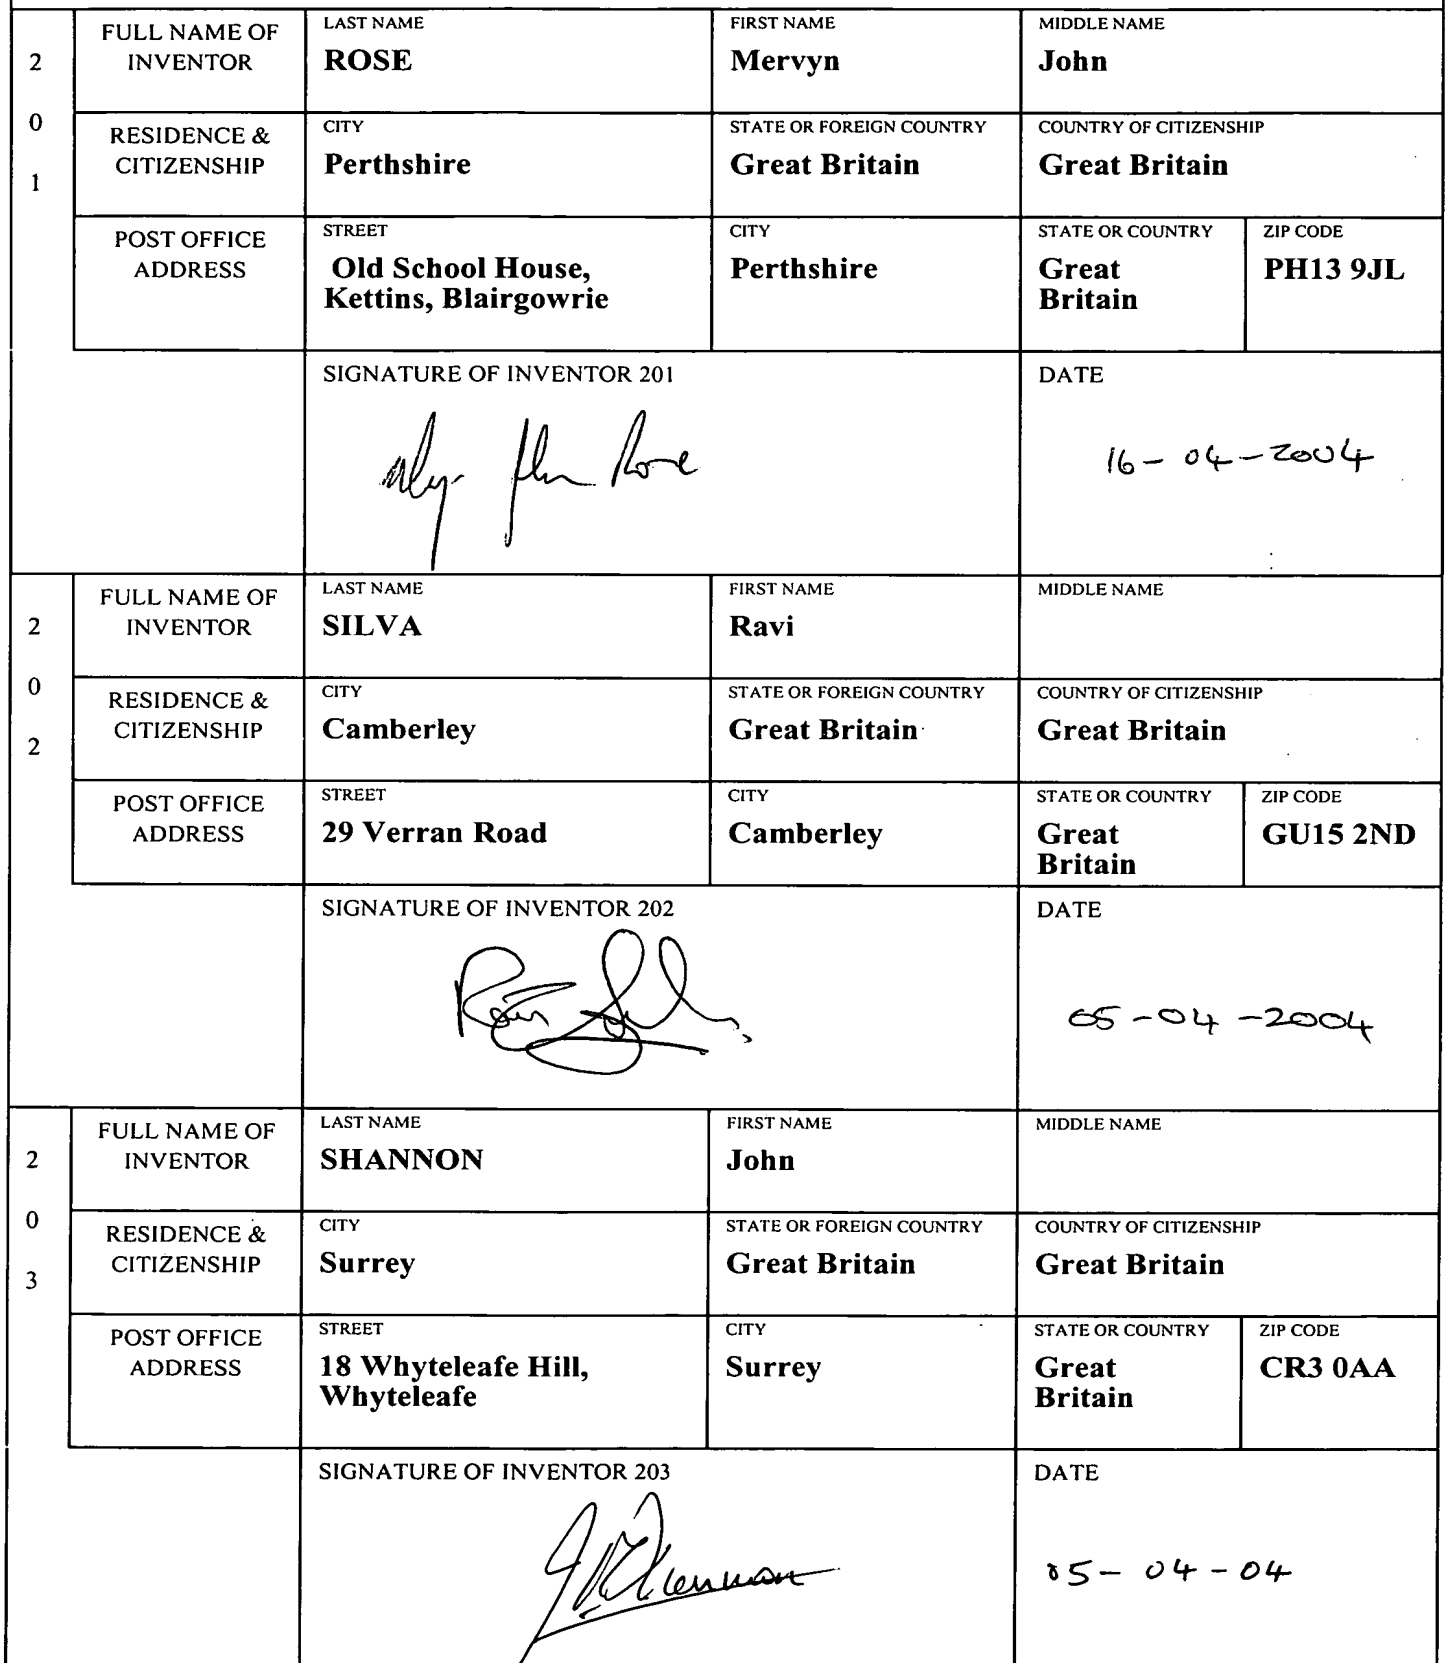 2
0
1
FULL NAME OF INVENTOR
LAST NAME
ROSE
FIRST NAME
Mervyn
MIDDLE NAME
John
RESIDENCE & CITIZENSHIP
CITY
Perthshire
STATE OR FOREIGN COUNTRY
Great Britain
COUNTRY OF CITIZENSHIP
Great Britain
POST OFFICE ADDRESS
STREET
Old School House,
Kettins, Blairgowrie
CITY
Perthshire
STATE OR COUNTRY
Great
Britain
ZIP CODE
PH13 9JL
SIGNATURE OF INVENTOR 201
John Rose
DATE
16-04-2004
2
0
2
FULL NAME OF INVENTOR
LAST NAME
SILVA
FIRST NAME
Ravi
MIDDLE NAME
RESIDENCE & CITIZENSHIP
CITY
Camberley
STATE OR FOREIGN COUNTRY
Great Britain
COUNTRY OF CITIZENSHIP
Great Britain
POST OFFICE ADDRESS
STREET
29 Verran Road
CITY
Camberley
STATE OR COUNTRY
Great
Britain
ZIP CODE
GU15 2ND
SIGNATURE OF INVENTOR 202
DATE
05-04-2004
2
0
3
FULL NAME OF INVENTOR
LAST NAME
SHANNON
FIRST NAME
John
MIDDLE NAME
RESIDENCE & CITIZENSHIP
CITY
Surrey
STATE OR FOREIGN COUNTRY
Great Britain
COUNTRY OF CITIZENSHIP
Great Britain
POST OFFICE ADDRESS
STREET
18 Whyteleafe Hill,
Whyteleafe
CITY
Surrey
STATE OR COUNTRY
Great
Britain
ZIP CODE
CR3 0AA
SIGNATURE OF INVENTOR 203
DATE
05-04-04